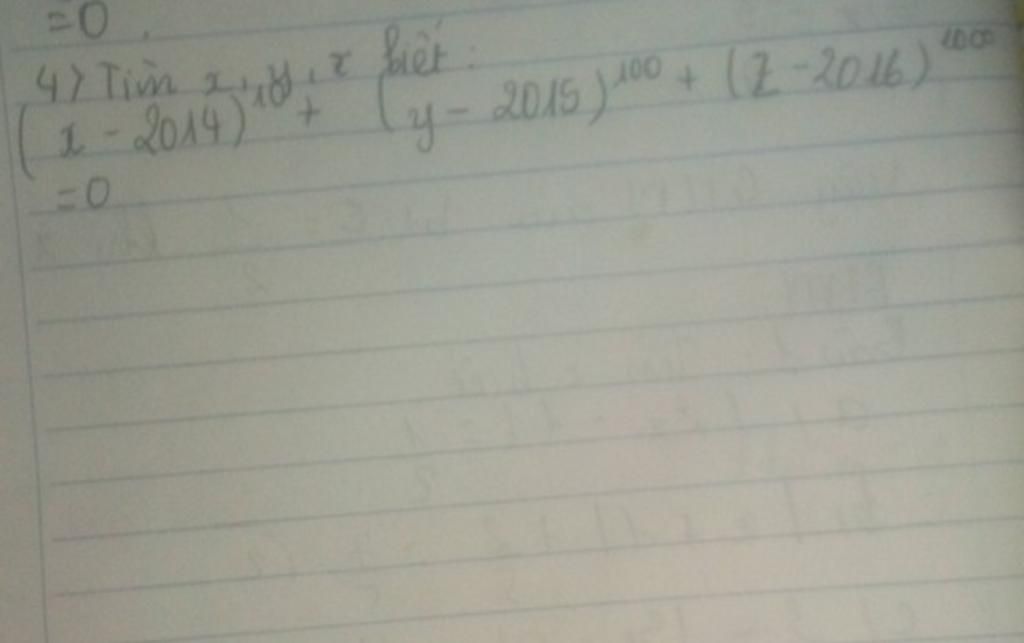 =0.
4) Tìm x, y, z biết:
(x - 2014)^10 + (y - 2015)^100 + (z - 2016)^1000
=0